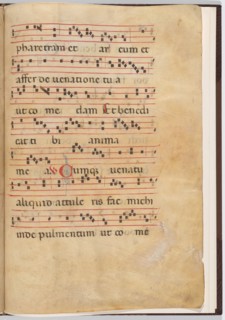 pharetram et ar cum et
affer de venatione tu a
ut co me dam et bene di
cat ti bi anima
me a Cumque venatu
aliquid attule ris fac michi
inde pulmentum ut co me